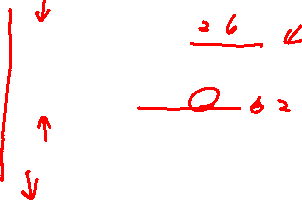 26
62